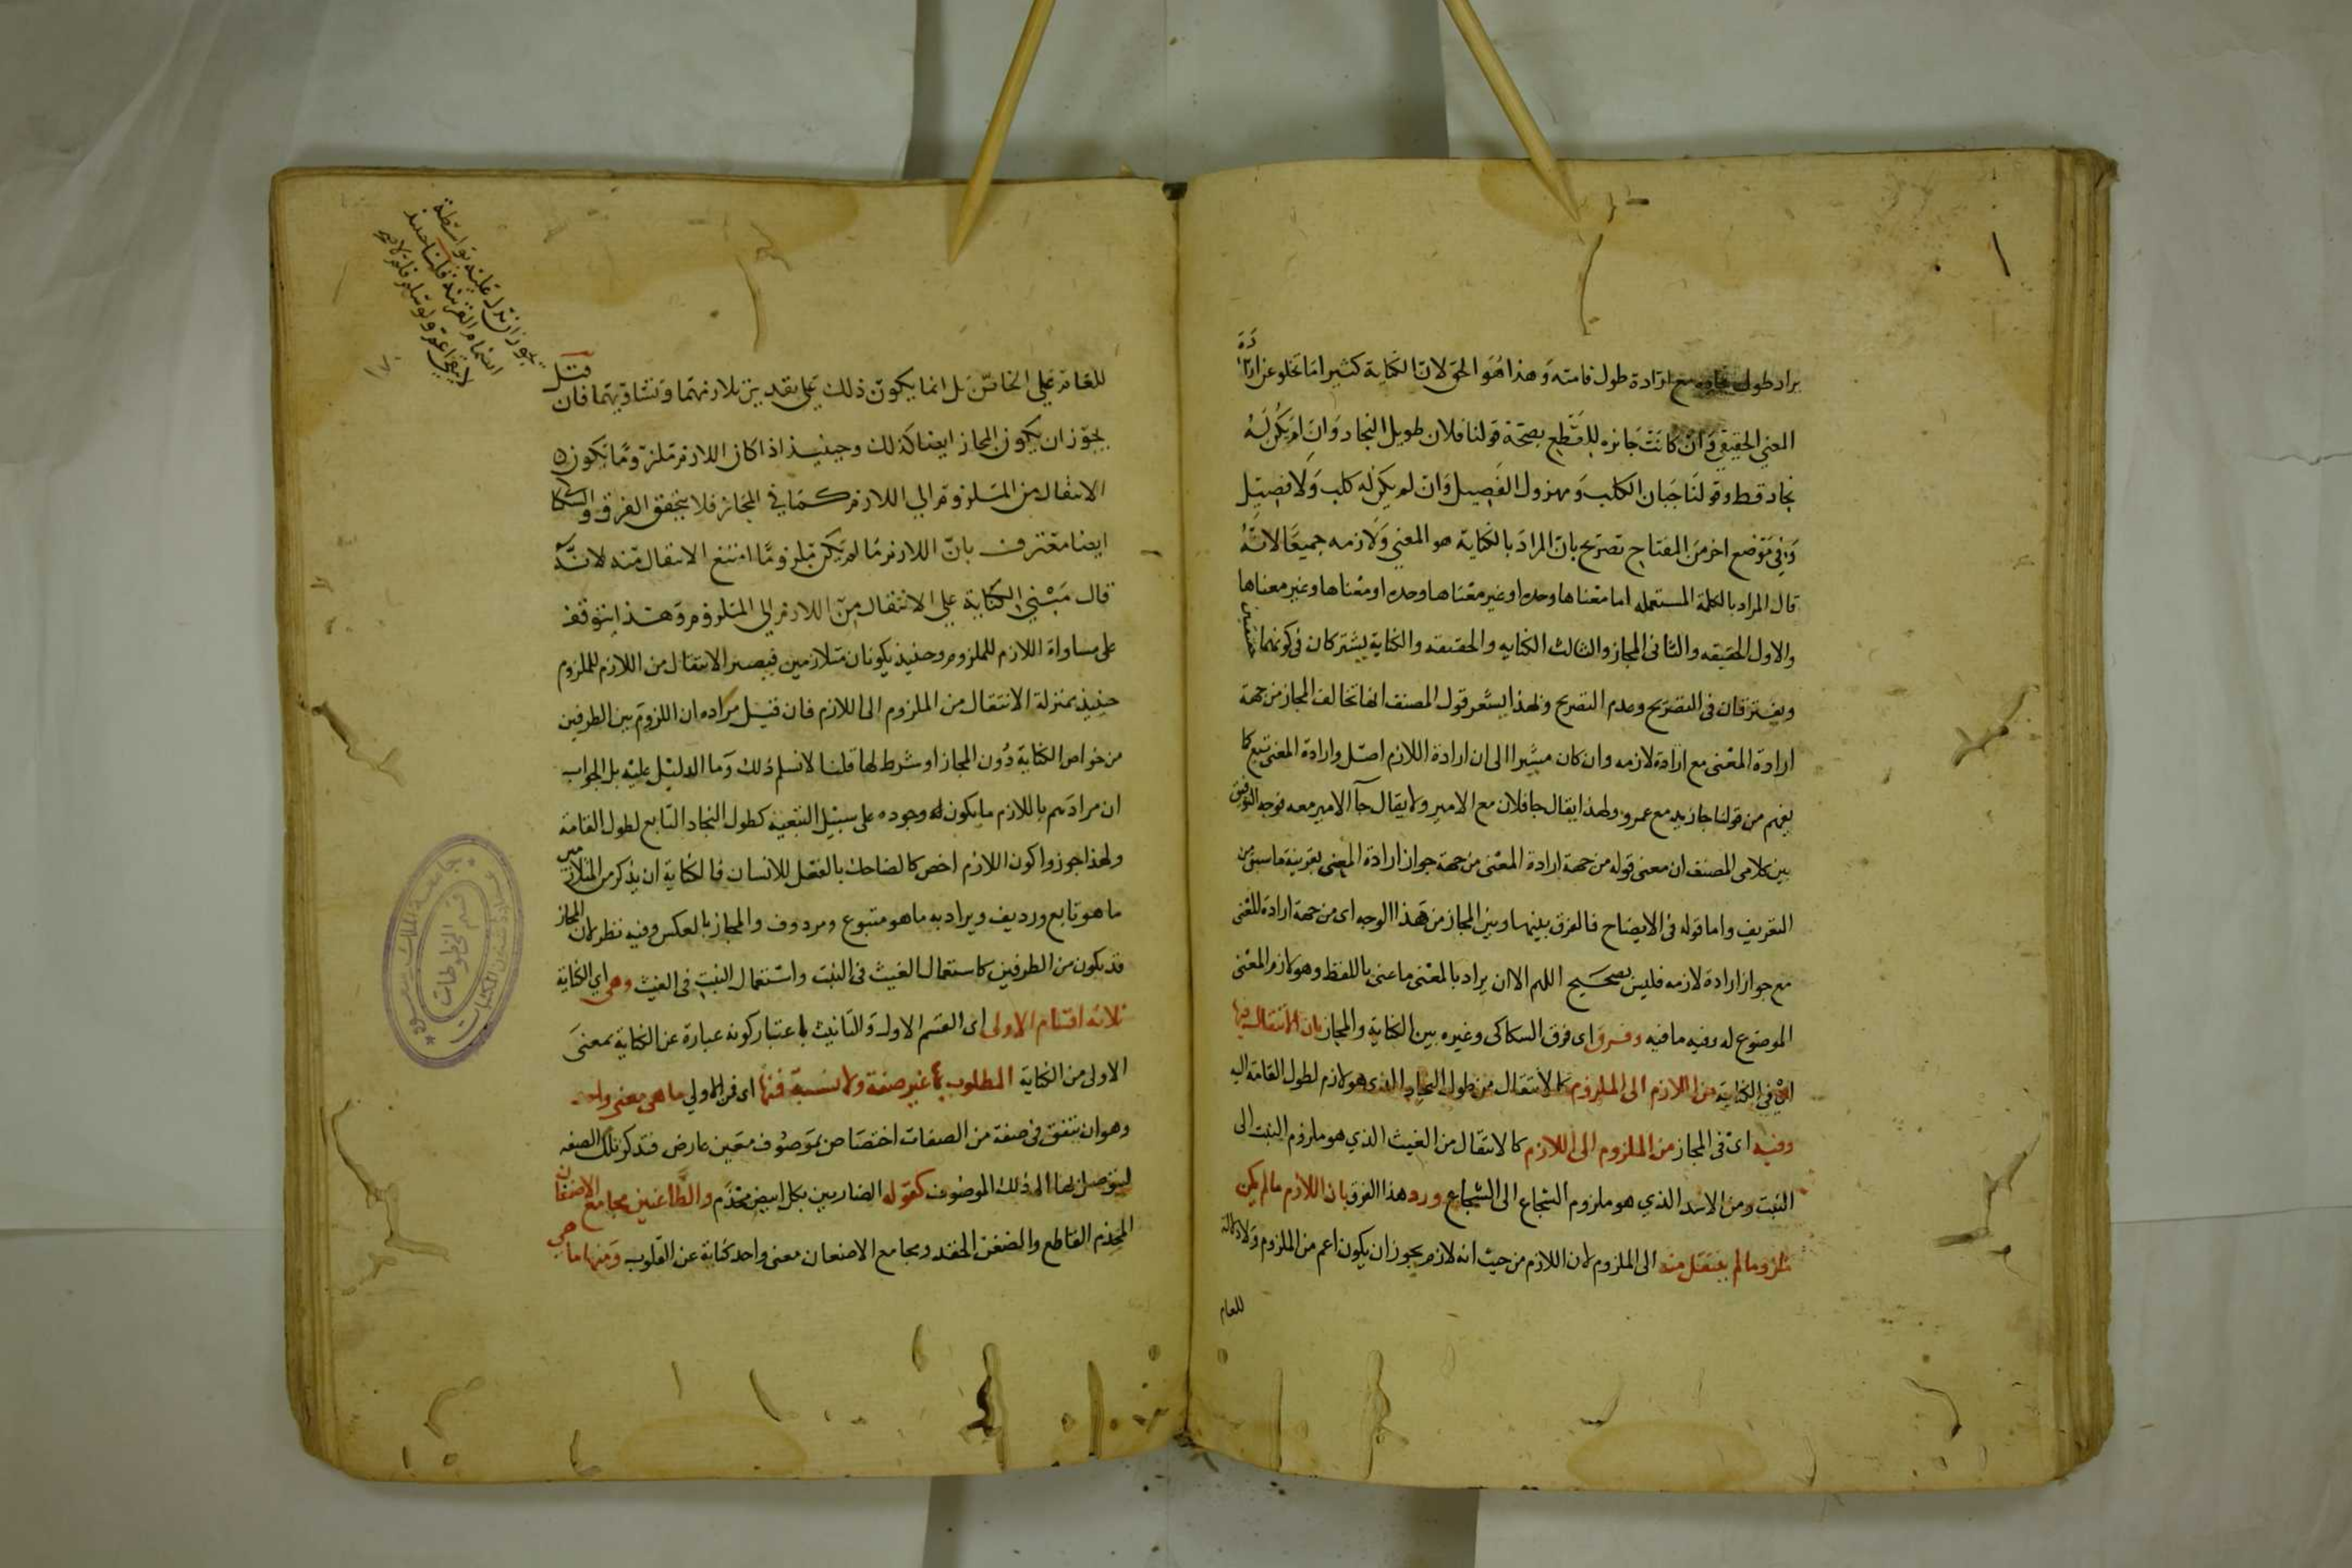 يراد طول نجاده مع ارادة طول قامته وهذا هو الحق لان الكناية كثيرا ما تخلو عن ارادة
المعنى الحقيقي وان كانت جائزه للقطع بصحة قولنا فلان طويل النجاد وان لم يكن له
نجاد قط وقولنا جبان الكلب ومهزول الفصيل وان لم يكن له كلب ولا فصيل
وفي موضع اخر من المفتاح تصريح بان المراد بالكناية هو المعنى ولازمه جميعا لانه
قال المراد بالكلمة المستعمله اما معناها وحده او غير معناها وحده او معناها وغير معناها
والاول الحقيقه والثاني المجاز والثالث الكنايه والحقيقه والكناية يشتركان في كونهما حقيقتين
ويفترقان في التصريح وعدم التصريح ولهذا يشعر قول المصنف انها تخالف المجاز من جهة
ارادة المعنى مع ارادة لازمه وان كان مشيرا الى ان ارادة اللازم اصل وارادة المعنى تبع كما
يفهم من قولنا جا زيد مع عمرو ولهذا يقال جا فلان مع الامير ولا يقال جآ الامير معه فوجه التوفيق
بين كلامى المصنف ان معنى قوله من جهة ارادة المعنى من جهة جواز ارادة المعنى بقرينة ما سبق من
التعريف واما قوله في الايضاح فالفرق بينها وبين المجاز من هذا الوجه اى من جهة ارادة المعنى
مع جواز ارادة لازمه فليس بصحيح اللهم الا ان يراد بالمعنى ما عنى باللفظ وهو لازم المعنى
الموضوع له وفيه ما فيه وفرق اى فرق السكاكى وغيره بين الكناية والمجاز بان الانتقال فيها
اى في الكناية من اللازم الى الملزوم كالانتقال من طول النجاد الذى هو لازم لطول القامة اليه
وفيه اى في المجاز من الملزوم الى اللازم كالانتقال من الغيث الذي هو ملزوم النبت الى
النبت ومن الاسد الذي هو ملزوم الشجاع الى الشجاع ورد هذا الفرق بان اللازم ما لم يكن
ملزوما لم ينتقل منه الى الملزوم لان اللازم من حيث انه لازم يجوز ان يكون اعم من الملزوم ولا دلالة
للعام
للعام على الخاص بل انما يكون ذلك على تقدير تلازمهما وتساويهما فان قيل
يجوز ان يكون المجاز ايضا كذلك وحينيذ اذا كان اللازم ملزوما يكون
الانتقال من الملزوم الي اللازم كما في المجاز فلا يتحقق الفرق والسكاكي
ايضا معترف بان اللازم ما لم يكن ملزوما امتنع الانتقال منه لانه
قال مبني الكناية على الانتقال من اللازم الي الملزوم وهذا يتوقف
على مساواة اللازم للملزوم وحينيذ يكونان متلازمين فيصير الانتقال من اللازم للملزوم
حينيذ بمنزلة الانتقال من الملزوم الى اللازم فان قيل مراده ان اللزوم بين الطرفين
من خواص الكناية دون المجاز او شرط لها قلنا لا نسلم ذلك وما الدليل عليه بل الجواب
ان مرادهم باللازم ما يكون له وجوده على سبيل التبعيه كطول النجاد التابع لطول القامة
ولهذا جوزوا كون اللازم اخص كالضاحك بالفعل للانسان فالكناية ان يذكر من المتلازمين
ما هو تابع ورديف ويراد به ما هو متبوع ومردوف والمجاز بالعكس وفيه نظر لان المجاز
قد يكون من الطرفين كاستعمال الغيث في النبت واستعمال النبت في الغيث وهى اي الكناية
ثلاثه اقسام الاولى اى القسم الاول والتانيث باعتبار كونه عبارة عن الكناية بمعنى
الاولى من الكناية المطلوب بها غير صفة ولا نسبة فمنها اى فمن الاولي ما هى معنى واحد
وهو ان يتفق في صفة من الصفات اختصاص بموصوف معين عارض فتذكر تلك الصفه
ليتوصل بها الى ذلك الموصوف كقوله الضاربين بكل ابيض مخذم والطاعنين مجامع الاضغان
المخذم القاطع والضغن الحقد ومجامع الاضغان معنى واحد كناية عن القلوب ومنها ما هي
يجوز ان يدل عليه بواسطة
انضمام القرينة قلنا حينيذ
لا يبقى اعم ولو
قسم المخطوطات